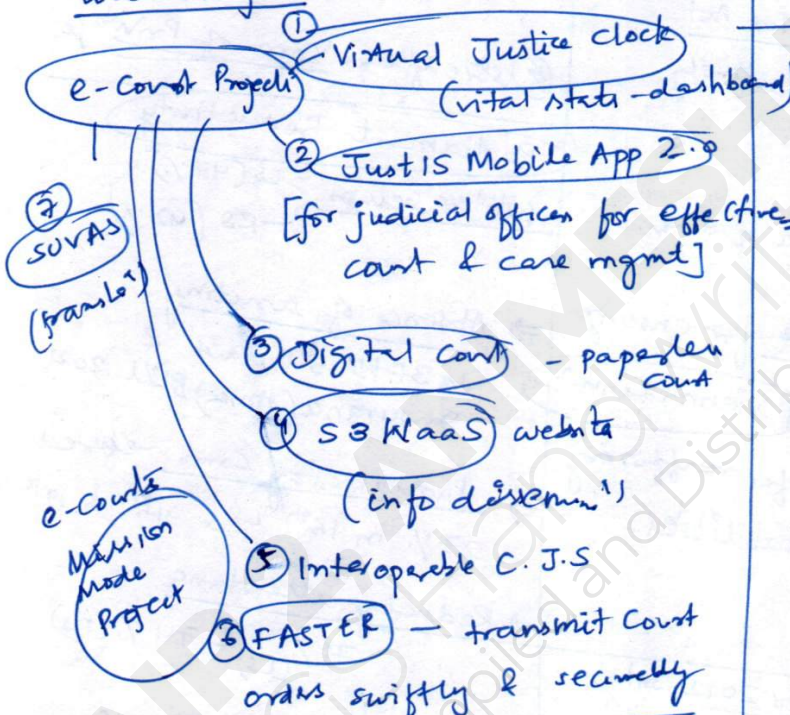 ①
e-Court Projects
Virtual Justice Clock
(vital stats - dashboard)
② JustIS Mobile App 2.0
[for judicial officers for effective
court & case mgmt]
⑦
SUVAS
(translatⁿ)
③ Digital Court - paperless
court
④ S3WaaS website
(info disseminⁿ)
e-Courts
Mission
Mode
Project
⑤ Interoperable C.J.S
⑥ FASTER - transmit Court
orders swiftly & securedly